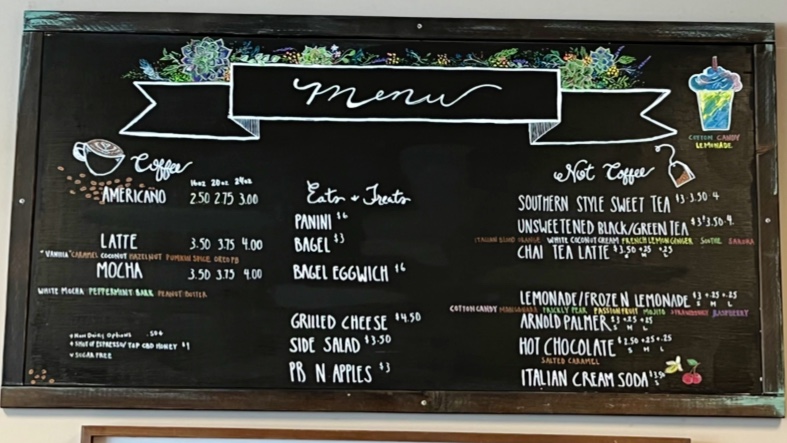 menu
COTTON CANDY
LEMONADE
Coffee
16oz 20oz 24oz
AMERICANO 2.50 2.75 3.00
LATTE 3.50 3.75 4.00
"VANILLA" CARAMEL COCONUT HAZELNUT PUMPKIN SPICE OREO PB
MOCHA 3.50 3.75 4.00
WHITE MOCHA PEPPERMINT BARK PEANUT BUTTER
+ Non Dairy Options .50¢
+ SHOT OF ESPRESSO/ TBP CBD HONEY $1
SUGAR FREE
Eats + Treats
PANINI $6
BAGEL $3
BAGEL EGGWICH $6
GRILLED CHEESE $4.50
SIDE SALAD $3.50
PB N APPLES $3
Not Coffee
SOUTHERN STYLE SWEET TEA $3·3.50·4
UNSWEETENED BLACK/GREEN TEA $3·3.50·4
ITALIAN BLOOD ORANGE WHITE COCONUT CREAM FRENCH LEMON GINGER SOOTHE SAKURA
CHAI TEA LATTE $3.50 +.25 +.25
LEMONADE/FROZEN LEMONADE $3 +.25 +.25
COTTON CANDY PRICKLY PEAR PASSIONFRUIT MOJITO STRAWBERRY RASPBERRY
ARNOLD PALMER $3 +.25 +.25
S M L
HOT CHOCOLATE $2.50 +.25 +.25
S M L
SALTED CARAMEL
ITALIAN CREAM SODA $3.50